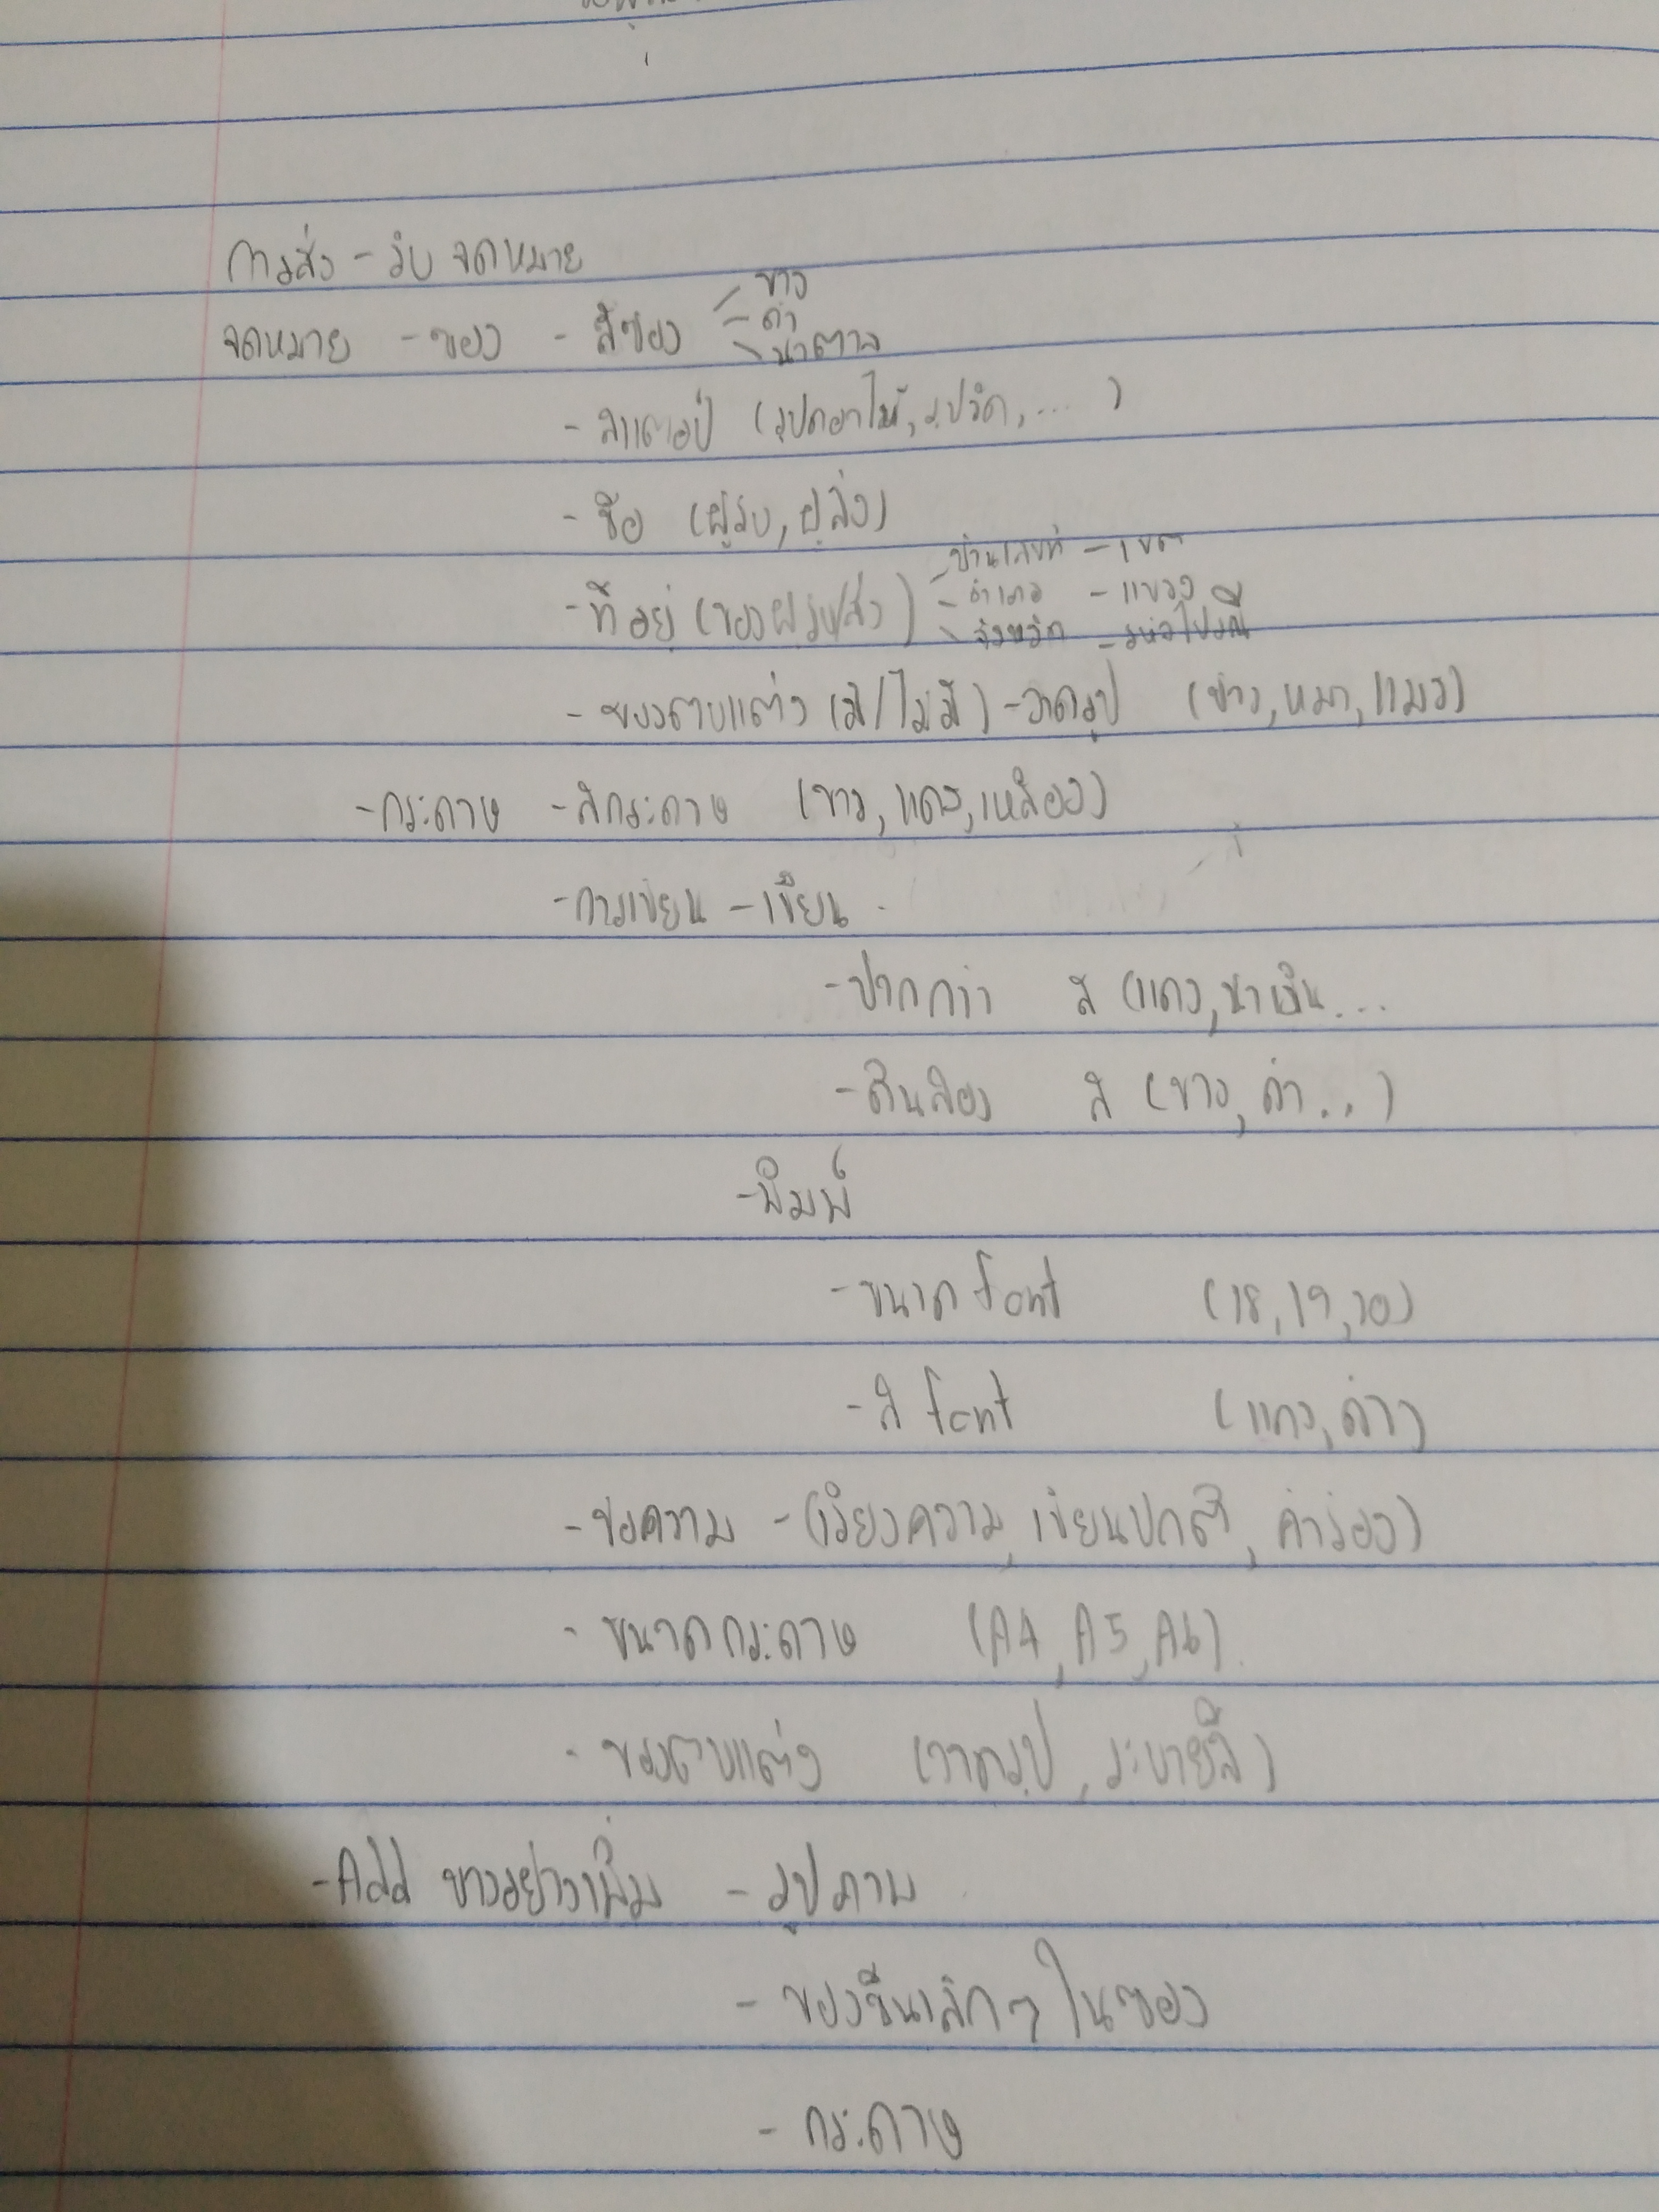 การส่ง - รับ จดหมาย
จดหมาย - ซอง - สีซอง - ขาว
- ดำ
- น้ำตาล
- สแตมป์ (รูปดอกไม้, รูปวัด, ... )
- ชื่อ (ผู้รับ, ผู้ส่ง)
- ที่อยู่ (ของผู้รับ/ส่ง) - บ้านเลขที่ - เขต
- อำเภอ - แขวง
- จังหวัด - รหัสไปรษณีย์
- ของตกแต่ง (มี/ไม่มี) - วาดรูป (ช้าง, หมา, แมว)
- กระดาษ - สีกระดาษ (ขาว, แดง, เหลือง)
- การเขียน - เขียน
- ปากกา สี (แดง, น้ำเงิน...
- ดินสอ สี (ขาว, ดำ...)
- พิมพ์
- ขนาด font (18, 19, 20)
- สี font (แดง, ดำ)
- ข้อความ - (เรียงความ, เขียนปกติ, คำร้อง)
- ขนาดกระดาษ (A4, A5, A6)
- ของตกแต่ง (วาดรูป, ระบายสี)
- Add บางอย่างเพิ่ม - รูปภาพ
- ของชิ้นเล็กๆ ในซอง
- กระดาษ